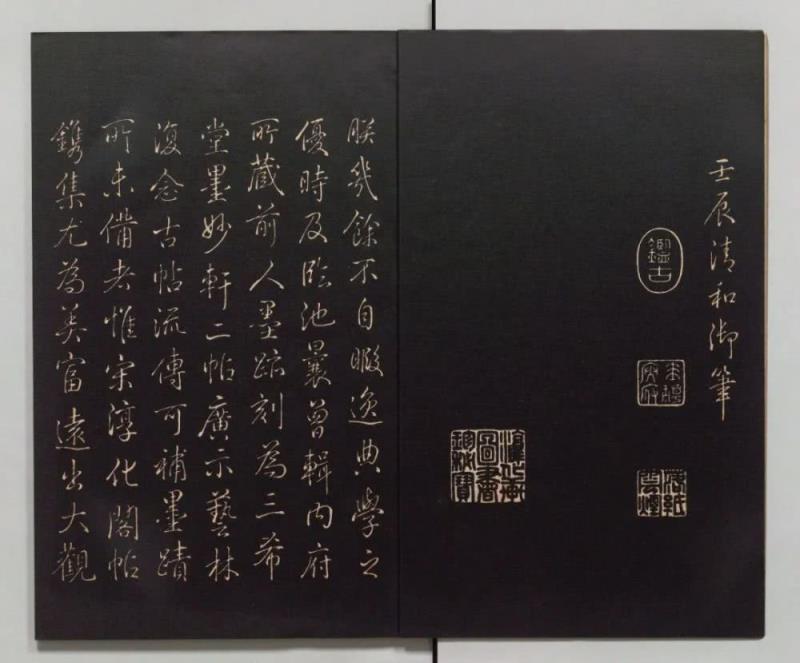 壬辰清和御筆
鑑古
淳化軒
圖書
珍秘寶
朕幾餘不自暇逸典學之
優時及臨池曩曾輯內府
所藏前人墨跡刻為三希
堂墨妙軒二帖廣示藝林
復念古帖流傳可補墨蹟
所未備者惟宋淳化閣帖
鐫集尤為美富遠出大觀